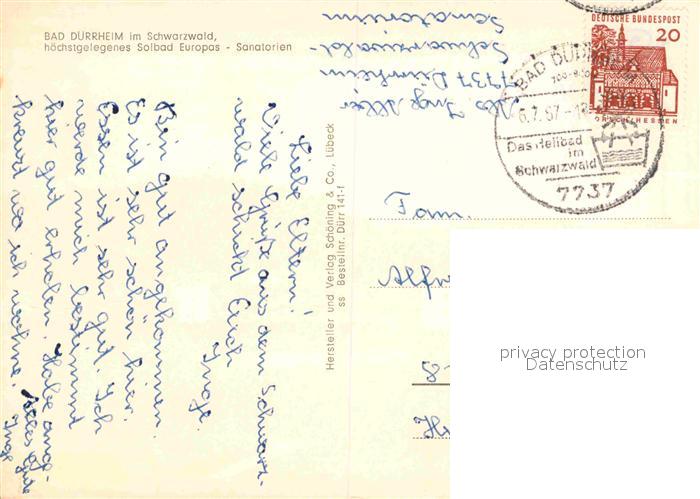 BAD DÜRRHEIM im Schwarzwald,
höchstgelegenes Solbad Europas - Sanatorien
Liebe Eltern!
Viele Grüße aus dem Schwarz-
wald schickt Euch
Inge.
Bin gut angekommen.
Es ist sehr schön hier.
Essen ist sehr gut. Ich
werde mich bestimmt
hier gut erholen. Habe ange-
kreuzt wo ich wohne.
Alles Gute
Inge
Hersteller und Verlag Schöning & Co., Lübeck
ss Bestellnr. Dürr 141-f
Abs. Inge
7737 Dürrheim
Schwarzwald-
Sanatorium
DEUTSCHE BUNDESPOST
20
LORSCH/HESSEN
BAD DÜRRHEIM
6.7.67-12
Das Heilbad
im
Schwarzwald
7737
Fam.
Alfr
privacy protection
Datenschutz